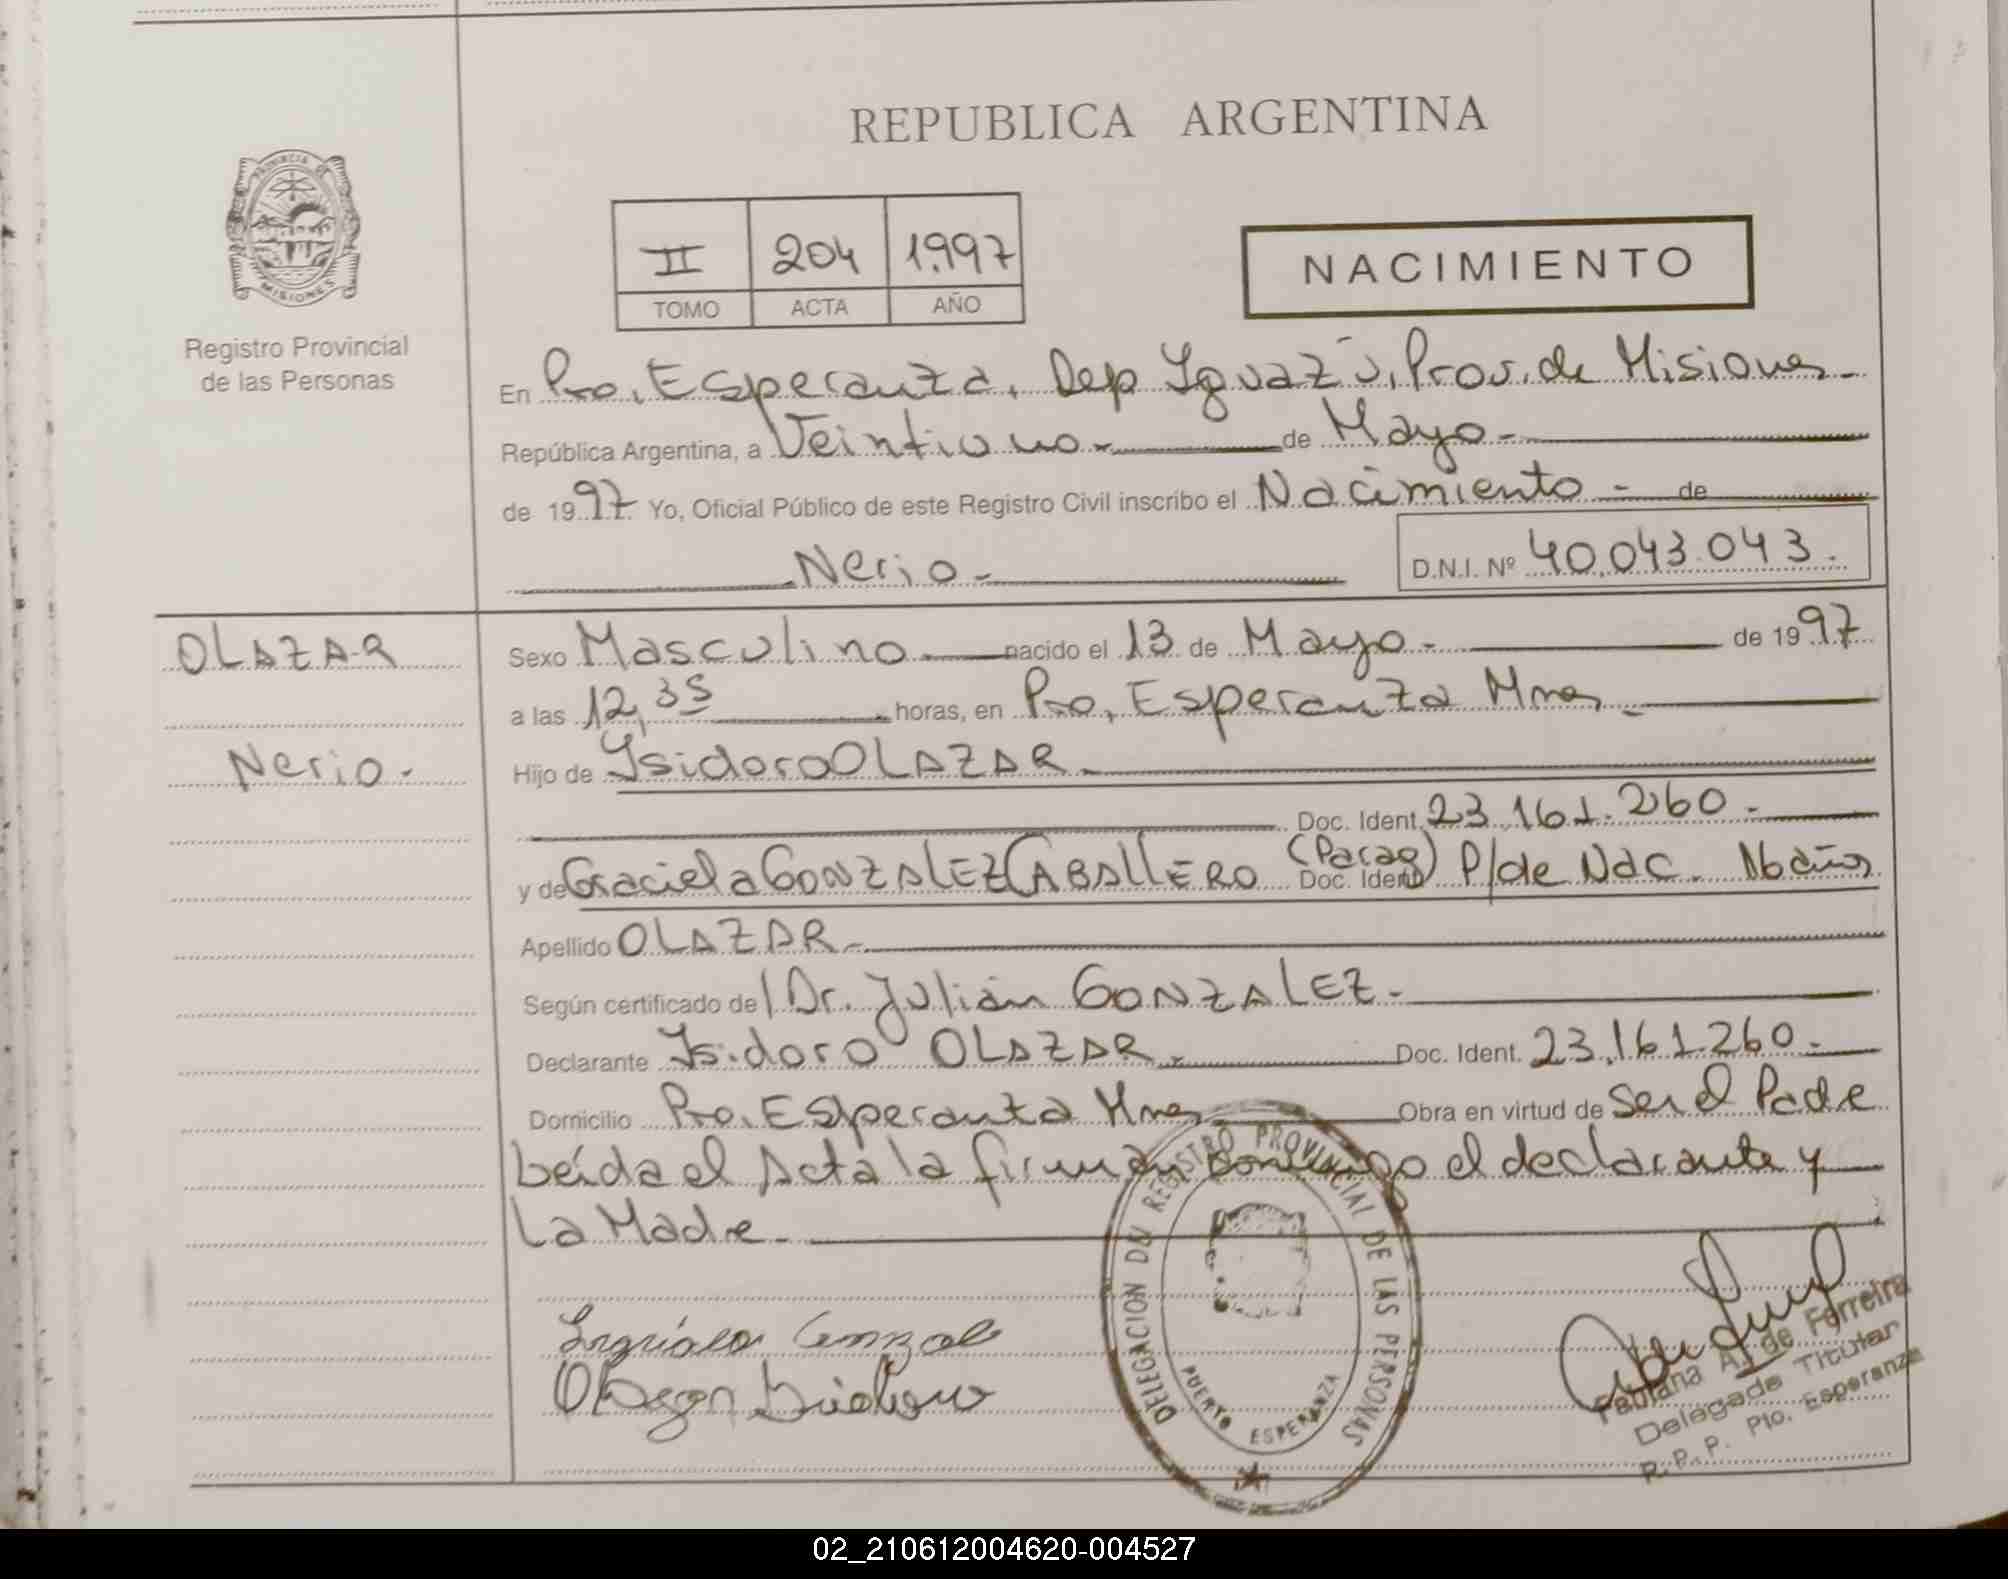 REPUBLICA ARGENTINA
PROVINCIA DE
MISIONES
Registro Provincial
de las Personas
II 204 1.997
TOMO ACTA AÑO
NACIMIENTO
En Pto. Esperanza. Dep Iguazú, Prov. de Misiones -
República Argentina, a Veintiuno - de Mayo -
de 1997 Yo, Oficial Público de este Registro Civil inscribo el Nacimiento - de
Nerio - D.N.I. Nº 40.043.043.
OLAZAR
Nerio -
Sexo Masculino nacido el 13 de Mayo - de 1997
a las 12,35 horas, en Pto. Esperanza Mnes -
Hijo de Isidoro OLAZAR -
Doc. Ident. 23.161.260 -
y de Graciela GONZALEZ CABALLERO (Parag) Doc. Ident P/de Nac. 16 años
Apellido OLAZAR -
Según certificado de / Dr. Julián GONZALEZ -
Declarante Isidoro OLAZAR - Doc. Ident. 23.161.260 -
Domicilio Pto. Esperanza Mnes Obra en virtud de Ser el Padre
Leída el Acta la firman conmigo el declarante y
La Madre -
DELEGACION DEL REGISTRO PROVINCIAL DE LAS PERSONAS
PUERTO ESPERANZA
Fabiana A. de Ferreira
Delegada Titular
R. P. P. Pto. Esperanza
02_210612004620-004527